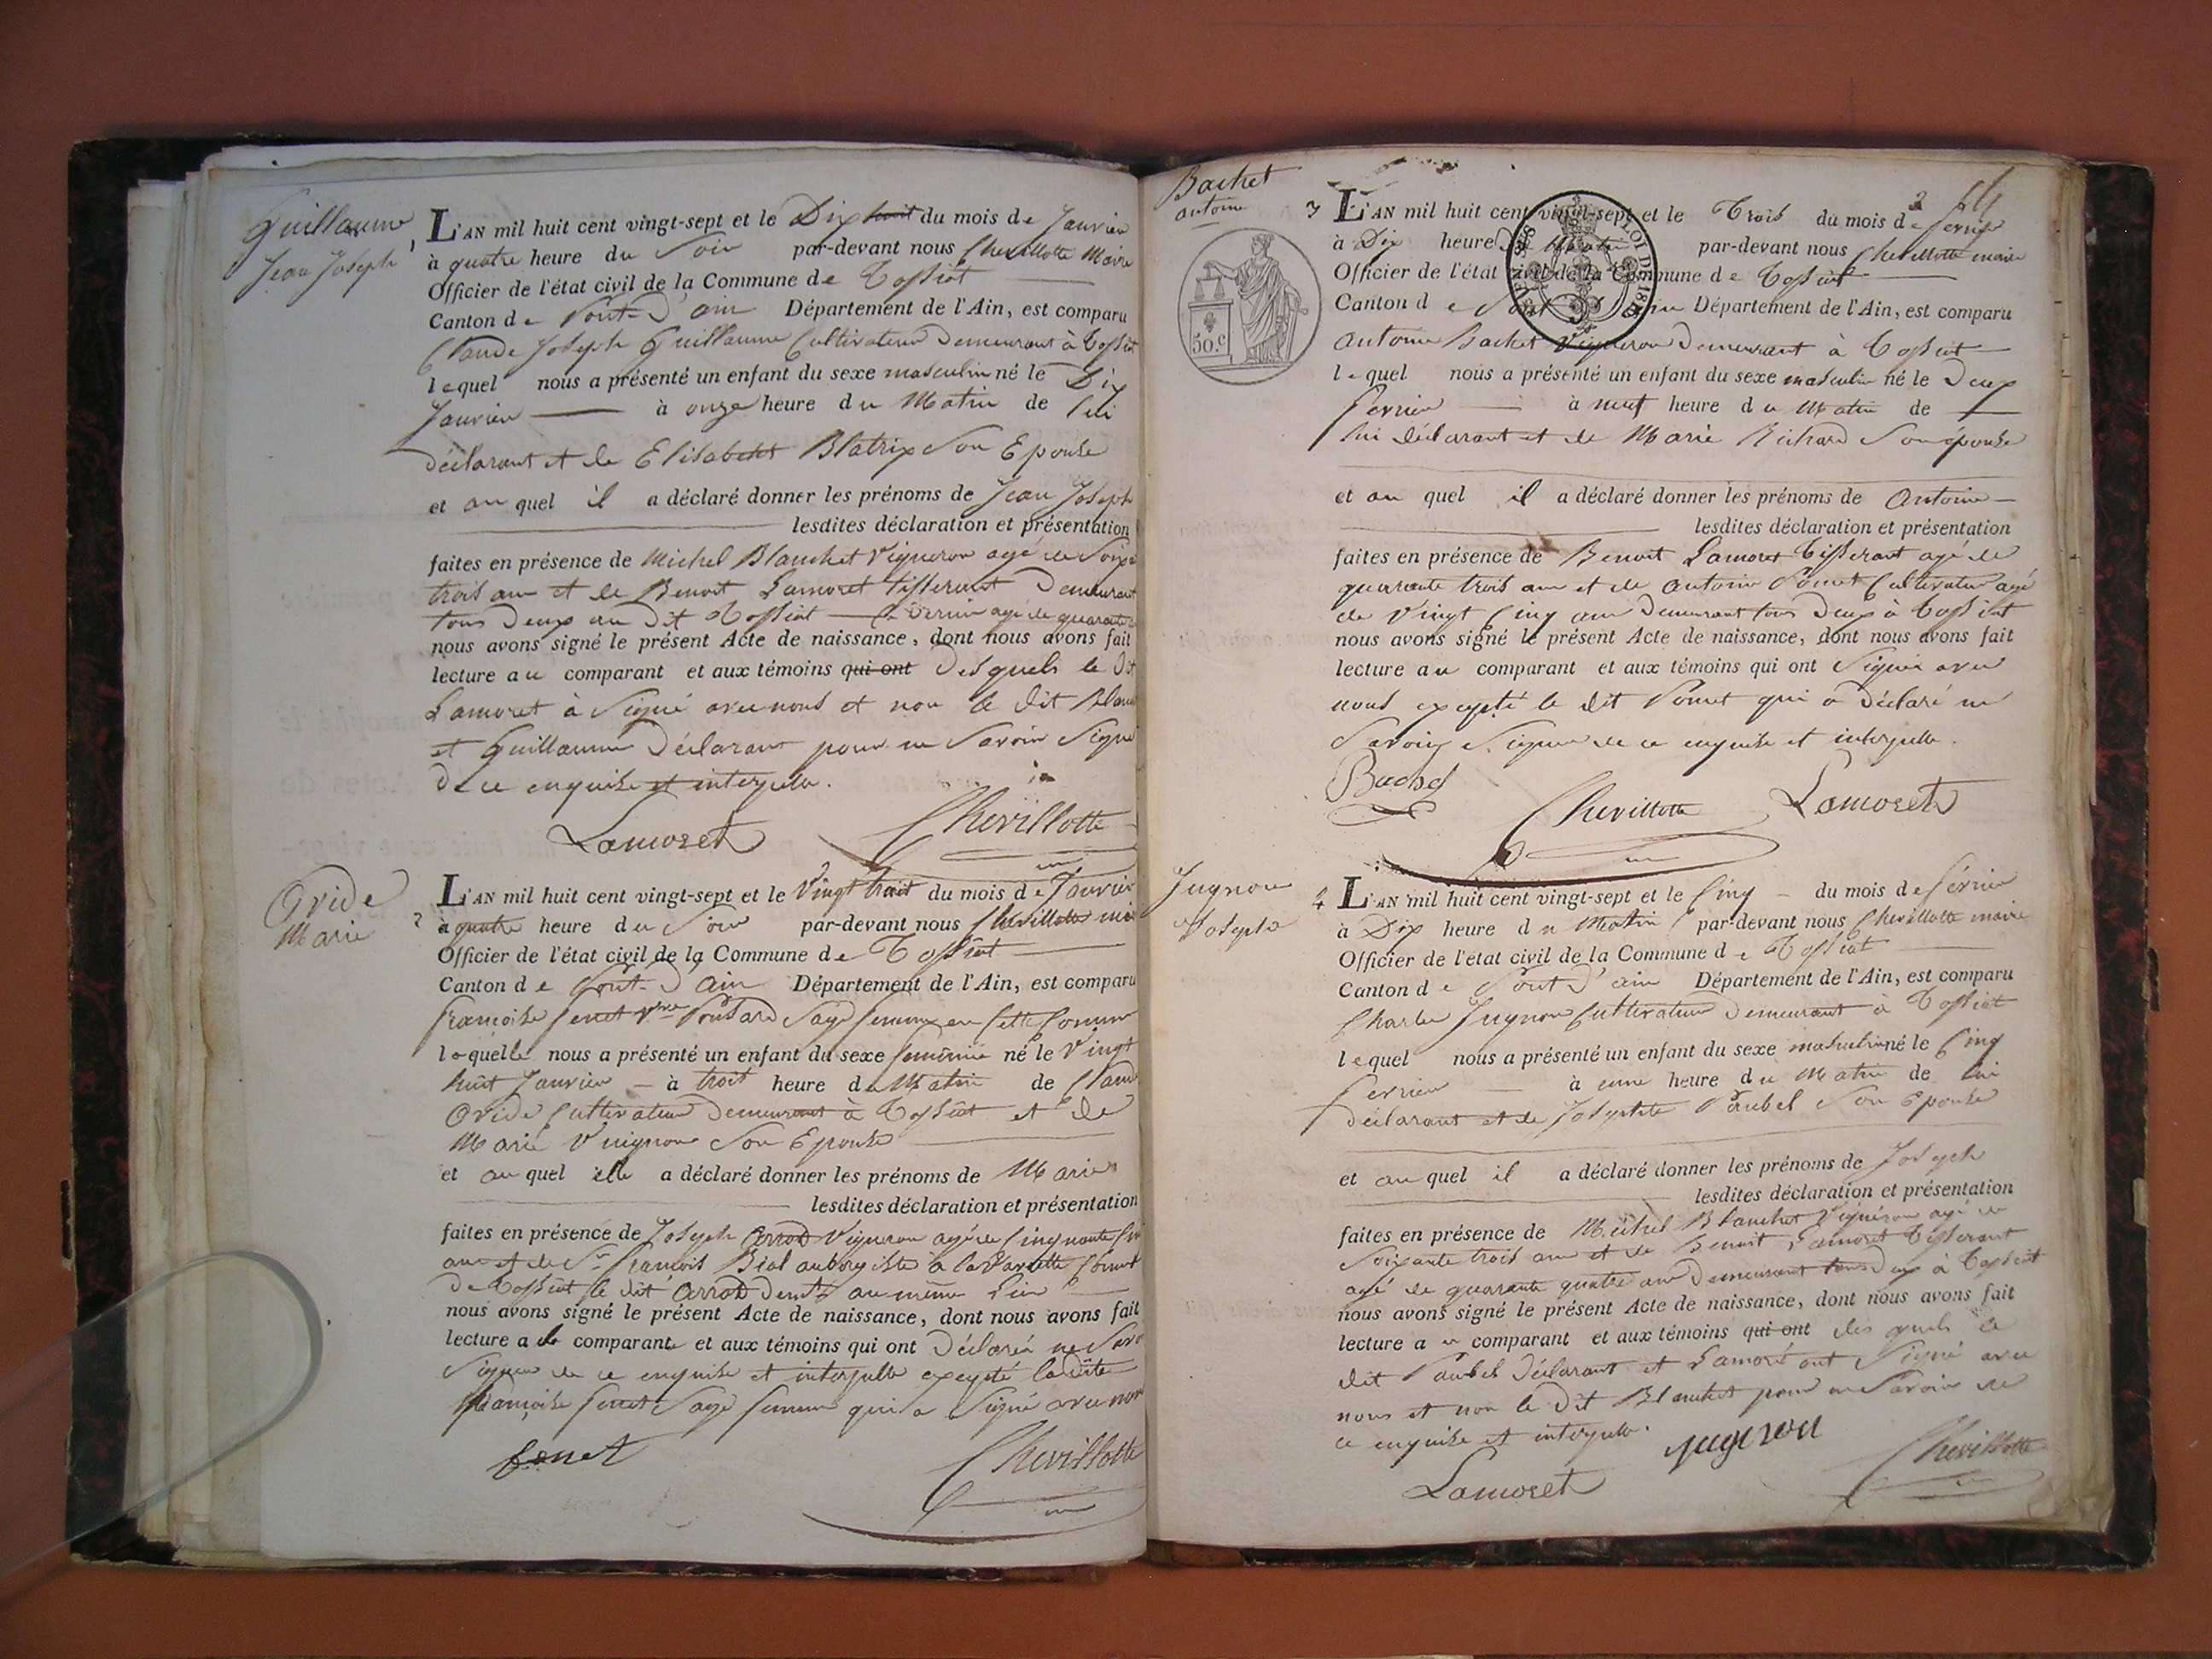 Guillaume
Jean Joseph
1
L'AN mil huit cent vingt-sept et le Dix huit du mois de Janvier
à quatre heure du Soir par-devant nous Chevillotte Maire
Officier de l'état civil de la Commune de Tossiat
Canton de Pont-d'ain Département de l'Ain, est comparu
Claude Joseph Guillaume Cultivateur Demeurant à Tossiat
lequel nous a présenté un enfant du sexe masculin né le Dix
Janvier à onze heure du Matin de lui
déclarant et de Elisabeth Blatrix Son Epouse
et au quel il a déclaré donner les prénoms de Jean Joseph
lesdites déclaration et présentation
faites en présence de Michel Blanchet Vigneron agé de Soix
trois ans et de Benoit Lamoret tisserant Demeurant
tous Deux au Dit Tossiat le Dernier agé de quarante
nous avons signé le présent Acte de naissance, dont nous avons fait
lecture au comparant et aux témoins qui ont Desquels le Dt
Lamoret à Signé avec nous et non le dit Blan
et Guillaume Déclarant pour ne Savoir Signe
de ce enquise et interpelle.
Lamoret Chevillotte
Ovide
Marie
2
L'AN mil huit cent vingt-sept et le Vingt huit du mois de Janvier
à quatre heure du Soir par-devant nous Chevillotte
Officier de l'état civil de la Commune de Tossiat
Canton de Pont-d'Ain Département de l'Ain, est comparu
francoise fenet Sage femme en Cette Commune
laquelle nous a présenté un enfant du sexe feminin né le Vingt
huit Janvier à trois heure du Matin de Claude
Ovide Cultivateur Demeurant à Tossiat et de
Marie Vuignon Son Epouse
et au quel elle a déclaré donner les prénoms de Marie
lesdites déclaration et présentation
faites en présence de Joseph Arrod Vigneron agé de Cinquante
ans et de Sr francois Bial aubergiste à la
De Tossiat le dit Arrod au même Lieu
nous avons signé le présent Acte de naissance, dont nous avons fait
lecture a la comparante et aux témoins qui ont Déclaré ne Savo
Signer de ce enquise et interpelle excepté la dite
francoise fenet Sage femme qui a Signé avec nous
fenet Chevillotte
Bachet
antoine
3
2
50.c
L'AN mil huit cent vingt-sept et le Trois du mois de février
à Dix heure du Matin par-devant nous Chevillotte maire
Officier de l'état civil de la Commune de Tossiat
Canton de Pont d'ain Département de l'Ain, est comparu
antoine Bachet Vigneron Demeurant à Tossiat
lequel nous a présenté un enfant du sexe masculin né le Deux
fevrier à neuf heure du Matin de
lui déclarant et de Marie Richard Son épouse
et au quel il a déclaré donner les prénoms de Antoine
lesdites déclaration et présentation
faites en présence de Benoit Lamoret Tisserant agé de
quarante trois ans et de antoine Pomet Cultivateur agé
de Vingt Cinq ans Demeurant tous Deux à Tossiat
nous avons signé le présent Acte de naissance, dont nous avons fait
lecture au comparant et aux témoins qui ont Signé avec
nous excepté le dit Pomet qui a Déclaré ne
Savoir Signer de ce enquise et interpelle.
Bachet
Chevillotte Lamoret
Jugnon
Joseph
4
L'AN mil huit cent vingt-sept et le Cinq du mois de février
à Dix heure du Matin par-devant nous Chevillotte maire
Officier de l'état civil de la Commune de Tossiat
Canton de Pont D'ain Département de l'Ain, est comparu
Charles Jugnon Cultivateur Demeurant à Tossiat
lequel nous a présenté un enfant du sexe masculin né le Cinq
fevrier à une heure du Matin de lui
déclarant et de Josephte Paubel Son Epouse
et au quel il a déclaré donner les prénoms de Joseph
lesdites déclaration et présentation
faites en présence de Michel Blanchet Vigneron agé de
Soixante trois ans et de Benoit Lamoret Tisserant
agé de quarante quatre ans Demeurant tous Deux à Tossiat
nous avons signé le présent Acte de naissance, dont nous avons fait
lecture au comparant et aux témoins qui ont des quels le
dit Paubel Déclarant et Lamoret ont Signé avec
nous et non le Dit Blanchet pour ne Savoir de
ce enquise et interpelle.
Jugnon
Lamoret Chevillotte